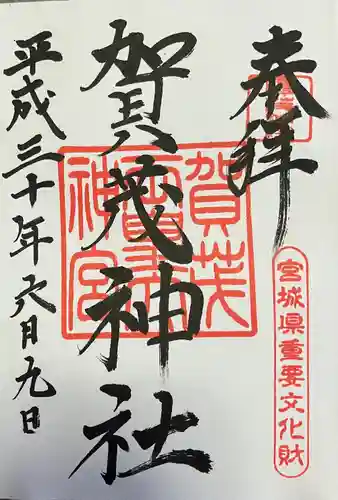 奉拝
宮城県重要文化財
賀茂神社
平成三十年六月九日